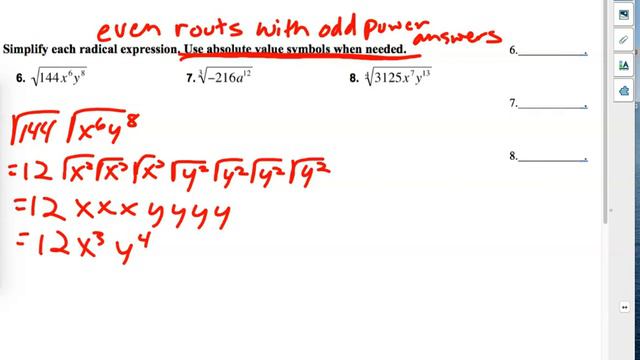 even routs with odd power answers
Simplify each radical expression. Use absolute value symbols when needed.
6. √144x⁶y⁸ 7. ∛−216a¹² 8. ∜3125x⁷y¹³
√144 √x⁶y⁸
= 12 √x² √x² √x² √y² √y² √y² √y²
= 12 x x x y y y y
= 12 x³ y⁴
6. ________.
7. ________.
8. ________.